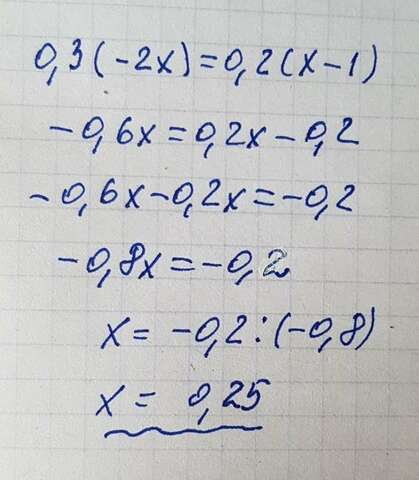 0,3(-2x)=0,2(x-1)
-0,6x=0,2x-0,2
-0,6x-0,2x=-0,2
-0,8x=-0,2
x= -0,2:(-0,8)
x= 0,25